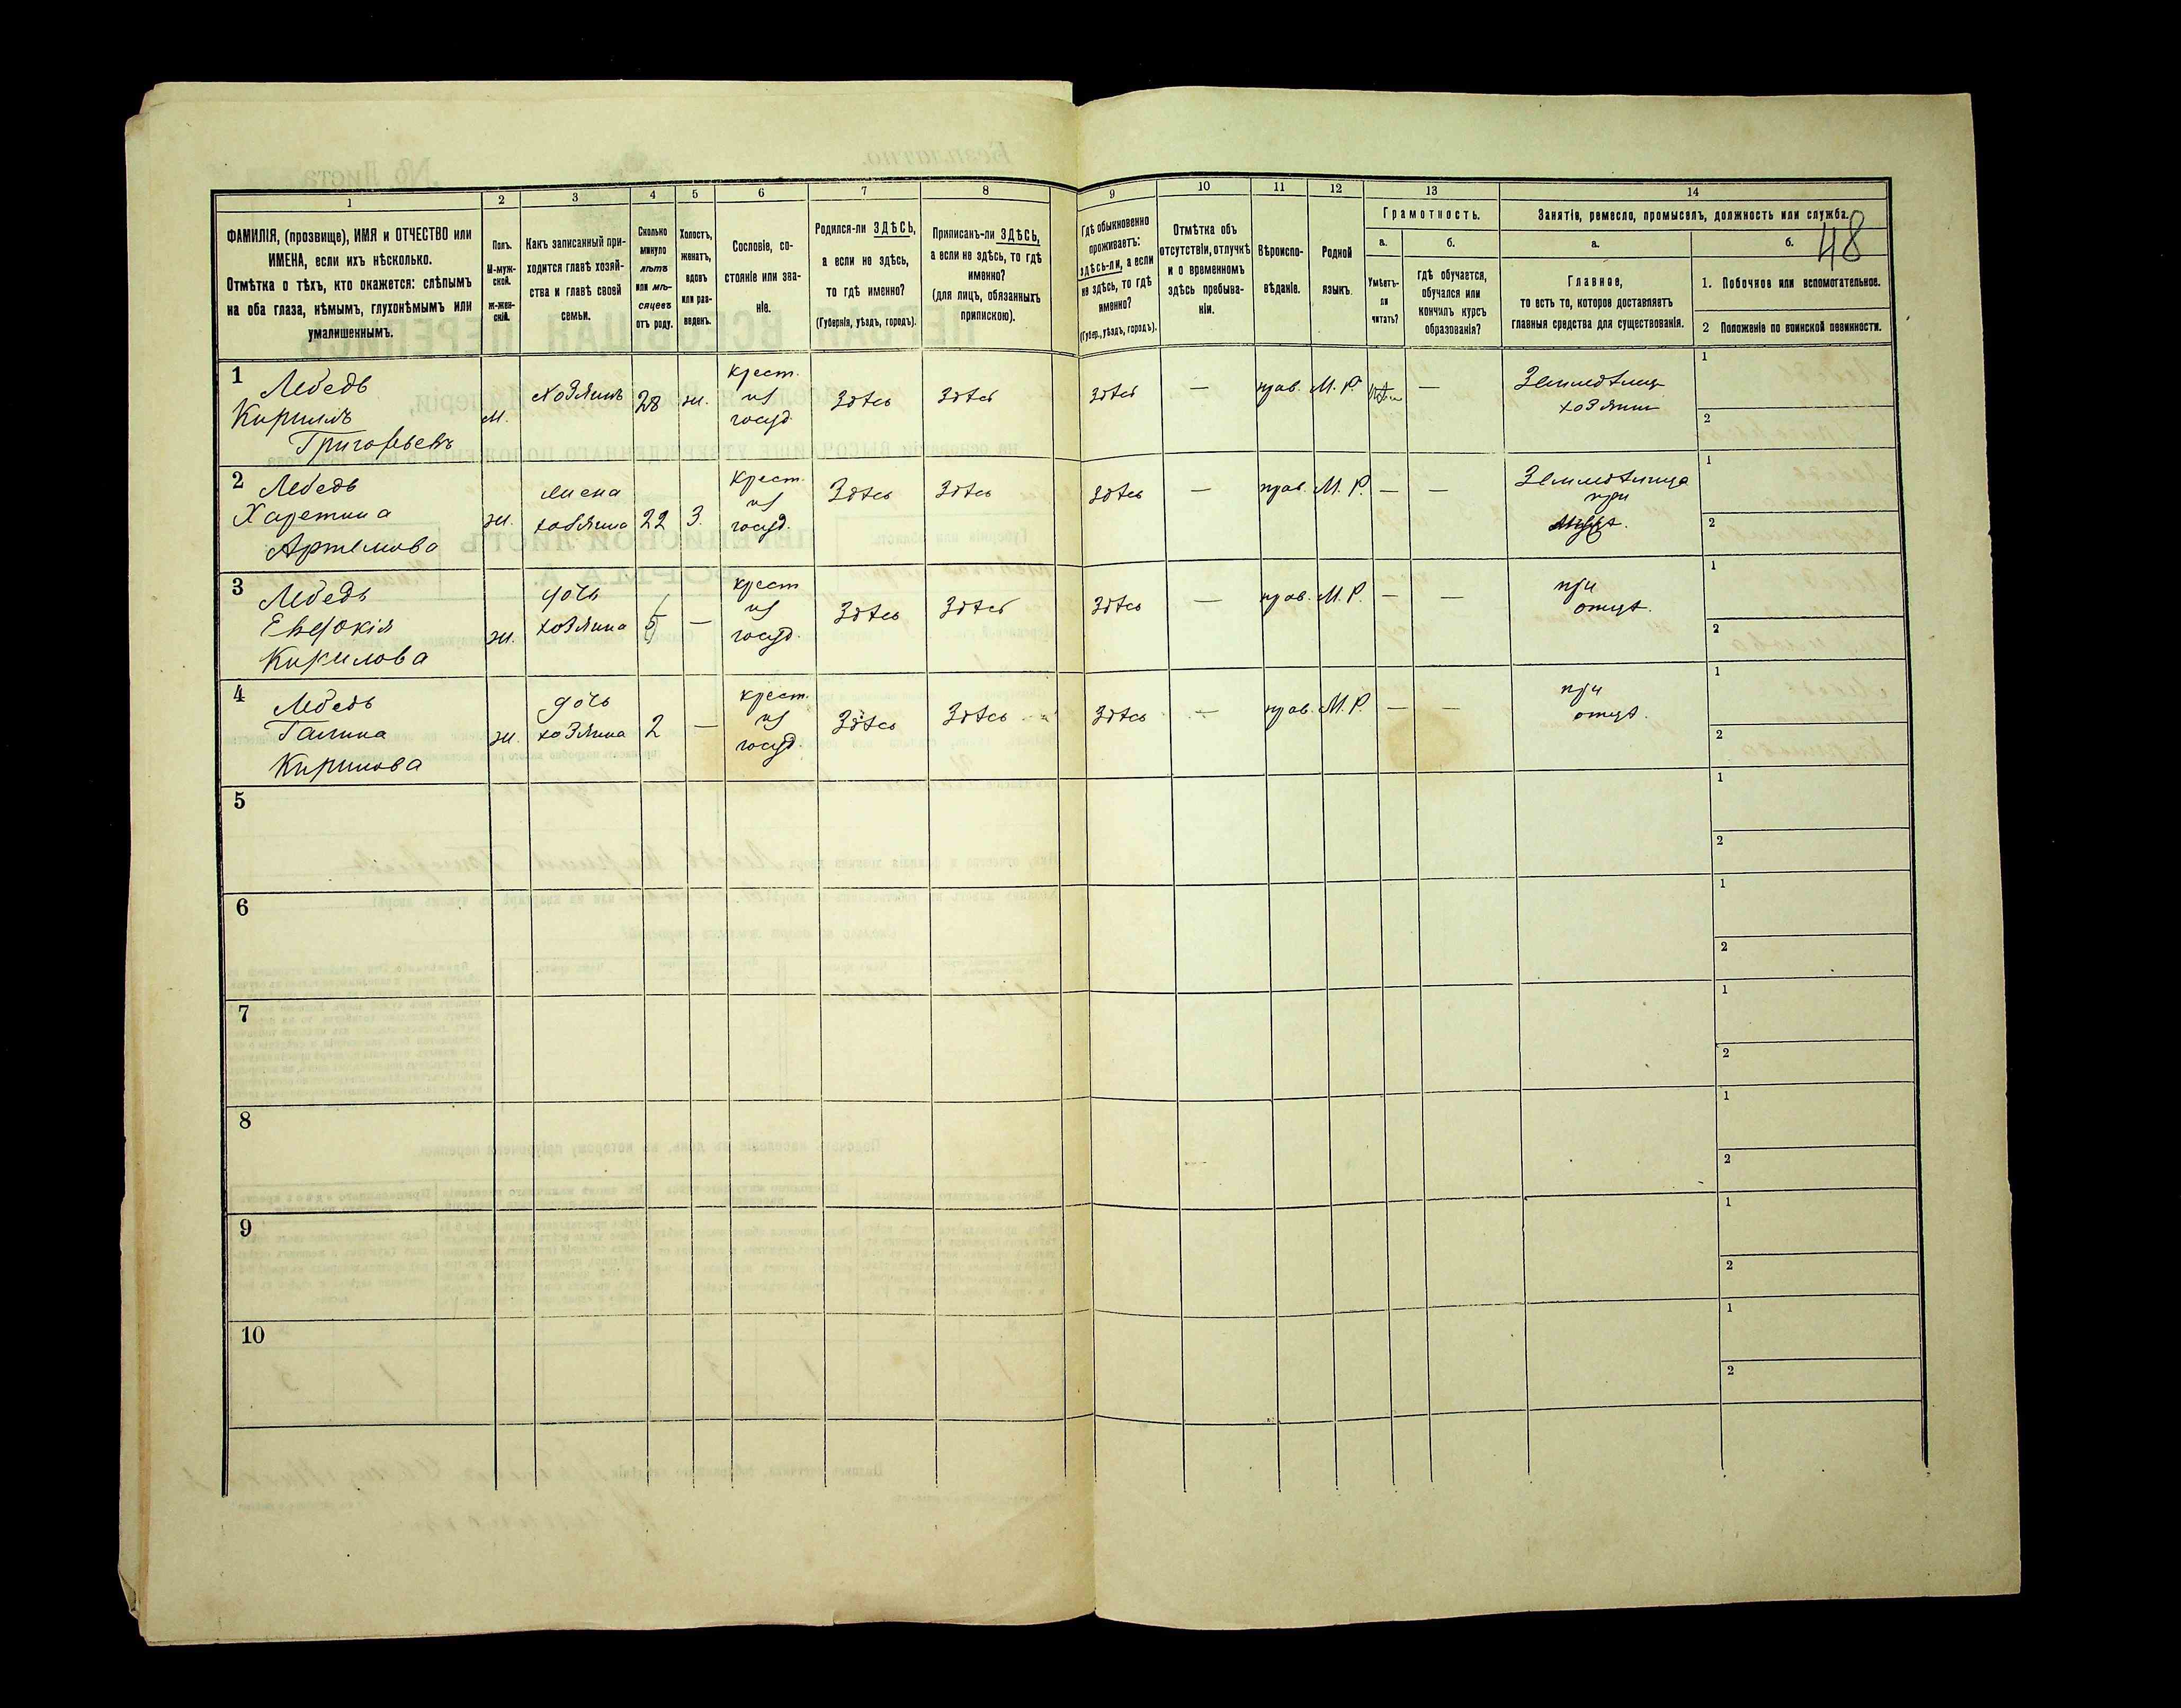 48
1 2 3 4 5 6 7 8 9 10 11 12 13 14
ФАМИЛІЯ, (прозвище), ИМЯ и ОТЧЕСТВО или
ИМЕНА, если ихъ нѣсколько.
Отмѣтка о тѣхъ, кто окажется: слѣпымъ
на оба глаза, нѣмымъ, глухонѣмымъ или
умалишеннымъ.
Полъ.
М-муж-
ской.
ж-жен-
скій.
Какъ записанный при-
ходится главѣ хозяй-
ства и главѣ своей
семьи.
Сколько
минуло
лѣтъ
или мѣ-
сяцевъ
отъ роду.
Холостъ,
женатъ,
вдовъ
или раз-
веденъ.
Сословіе, со-
стояніе или зва-
ніе.
Родился-ли ЗДѢСЬ,
а если не здѣсь,
то гдѣ именно?
(Губернія, уѣздъ, городъ).
Приписанъ-ли ЗДѢСЬ,
а если не здѣсь, то гдѣ
именно?
(для лицъ, обязанныхъ
припискою).
Гдѣ обыкновенно
проживаетъ:
здѣсь-ли, а если
не здѣсь, то гдѣ
именно?
(Губер., уѣздъ, городъ).
Отмѣтка объ
отсутствіи, отлучкѣ
и о временномъ
здѣсь пребыва-
ніи.
Вѣроиспо-
вѣданіе.
Родной
языкъ.
Грамотность.
а.
Умѣетъ-
ли
читать?
б.
гдѣ обучается,
обучался или
кончилъ курсъ
образованія?
Занятія, ремесло, промыселъ, должность или служба.
а.
Главное,
то есть то, которое доставляетъ
главныя средства для существованія.
б.
1. Побочное или вспомогательное.
2 Положеніе по воинской повинности.
1
Лебедь
Кирилъ
Григорьевъ
м.
хозяинъ
28
ж.
крест.
из
госуд.
Здѣсь
Здѣсь
Здѣсь
—
прав.
М. Р.
—
Землед&#1123;лец
хозяин
1
2
2
Лебедь
Харетина
Артемова
ж.
жена
хозяина
22
З.
крест.
из
госуд.
Здѣсь
Здѣсь
Здѣсь
—
прав.
М. Р.
—
—
Земледѣлица
при
мужѣ.
1
2
3
Лебедь
Евдокія
Кирилова
ж.
дочь
хозяина
5
—
крест
из
госуд.
Здѣсь
Здѣсь
Здѣсь
—
прав.
М. Р.
—
—
при
отцѣ.
1
2
4
Лебедь
Галина
Кирилова
ж.
дочь
хозяина
2
—
крест.
из
госуд.
Здѣсь
Здѣсь
Здѣсь
—
прав.
М. Р.
—
—
при
отцѣ.
1
2
5
1
2
6
1
2
7
1
2
8
1
2
9
1
2
10
1
2